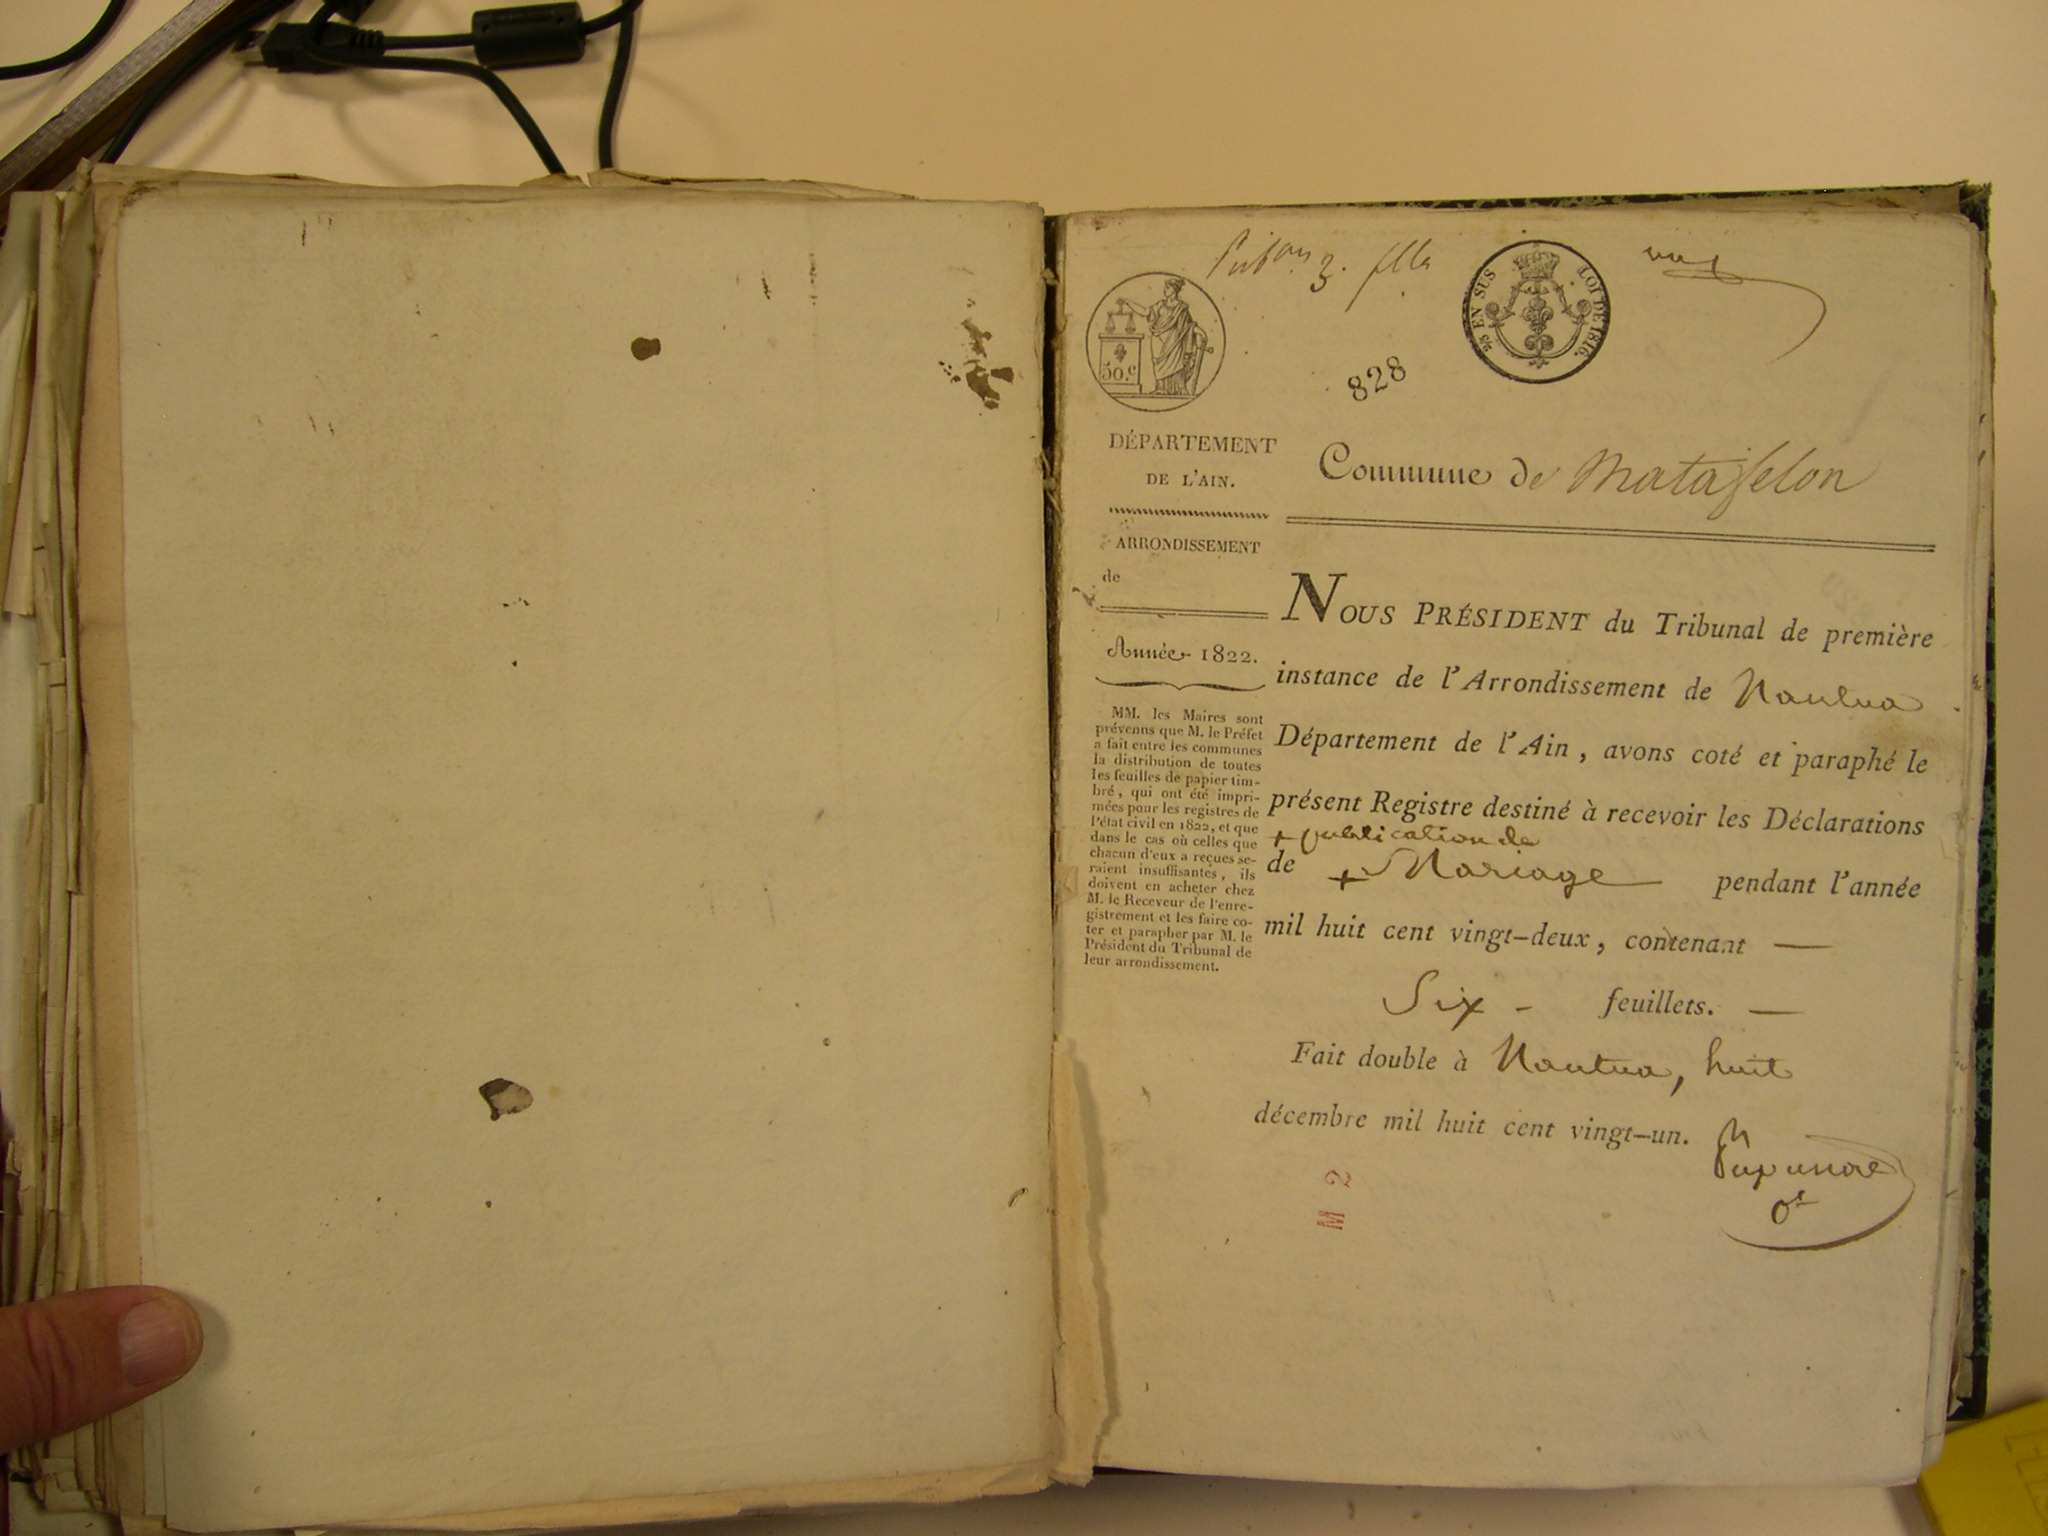 3.
50.c
¼ EN SUS LOI DE 1816.
828
DÉPARTEMENT
DE L'AIN.
Commune de Matafelon
ARRONDISSEMENT
de
Année 1822.
MM. les Maires sont
prévenus que M. le Préfet
a fait entre les communes
la distribution de toutes
les feuilles de papier tim-
bré, qui ont été impri-
mées pour les registres de
l'état civil en 1822, et que
dans le cas où celles que
chacun d'eux a reçues se-
raient insuffisantes, ils
doivent en acheter chez
M. le Receveur de l'enre-
gistrement et les faire co-
ter et parapher par M. le
Président du Tribunal de
leur arrondissement.
NOUS PRÉSIDENT du Tribunal de première
instance de l'Arrondissement de Nantua
Département de l'Ain, avons coté et paraphé le
présent Registre destiné à recevoir les Déclarations
+ publication de
de + Mariage pendant l'année
mil huit cent vingt-deux, contenant —
Six - feuillets. —
Fait double à Nantua, huit
décembre mil huit cent vingt-un.
M 2